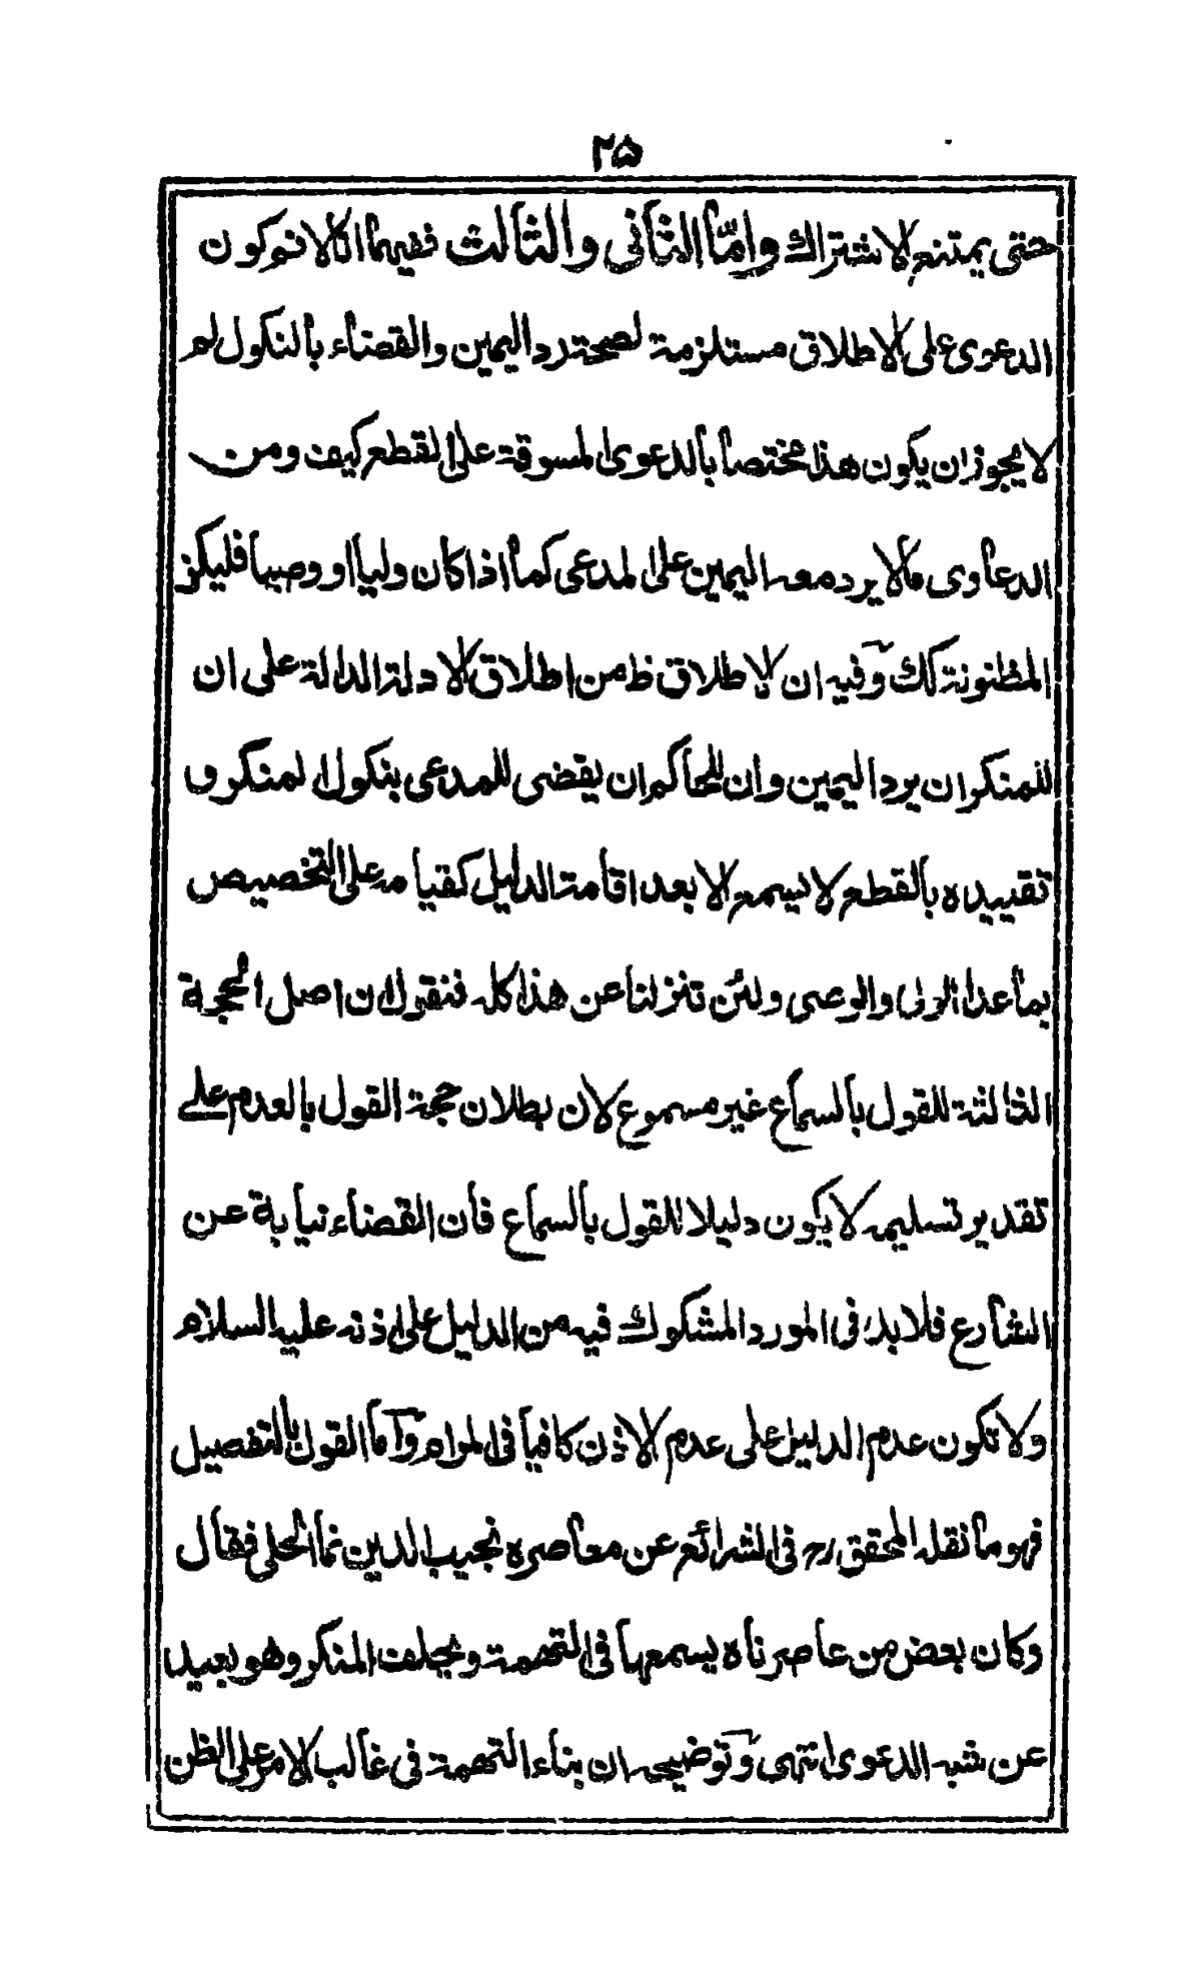 ۲۵
حتى يمتنع الاشتراك وامّا الثاني والثالث ففيهما انا لا نم كون
الدعوى على الاطلاق مستلزمة لصحة رد اليمين والقضاء بالنكول لم
لا يجوز ان يكون هذا مختصا بالدعوى المسوقة على القطع كيف ومن
الدعاوى ما لا يرد معه اليمين على المدعى كما اذا كان وليا او وصيا فليكن
المظنونة كك وفيه ان الاطلاق ظ من اطلاق الادلة الدالة على ان
للمنكر ان يرد اليمين وان للحاكم ان يقضى للمدعى بنكول المنكر و
تقييده بالقطع لا يسمع الا بعد اقامة الدليل كقيامه على التخصيص
بما عدا الولى والوصى ولئن تنزلنا عن هذا كله فنقول ان اصل الحجة
الثالثة للقول بالسماع غير مسموع لان بطلان حجة القول بالعدم على
تقدير تسليمه لا يكون دليلا للقول بالسماع فان القضاء نيابة عن
الشارع فلا بد فى المورد المشكوك فيه من الدليل على اذنه عليه السلام
ولا تكون عدم الدليل على عدم الاذن كافيا فى المرام وآما القول بالتفصيل
فهو ما نقله المحقق ره فى الشرائع عن معاصره نجيب الدين نما الحلى فقال
وكان بعض من عاصرناه يسمعها فى التهمة ويحلف المنكر وهو بعيد
عن شبه الدعوى انتهى وتوضيحه ان بناء التهمة فى غالب الامر على الظن